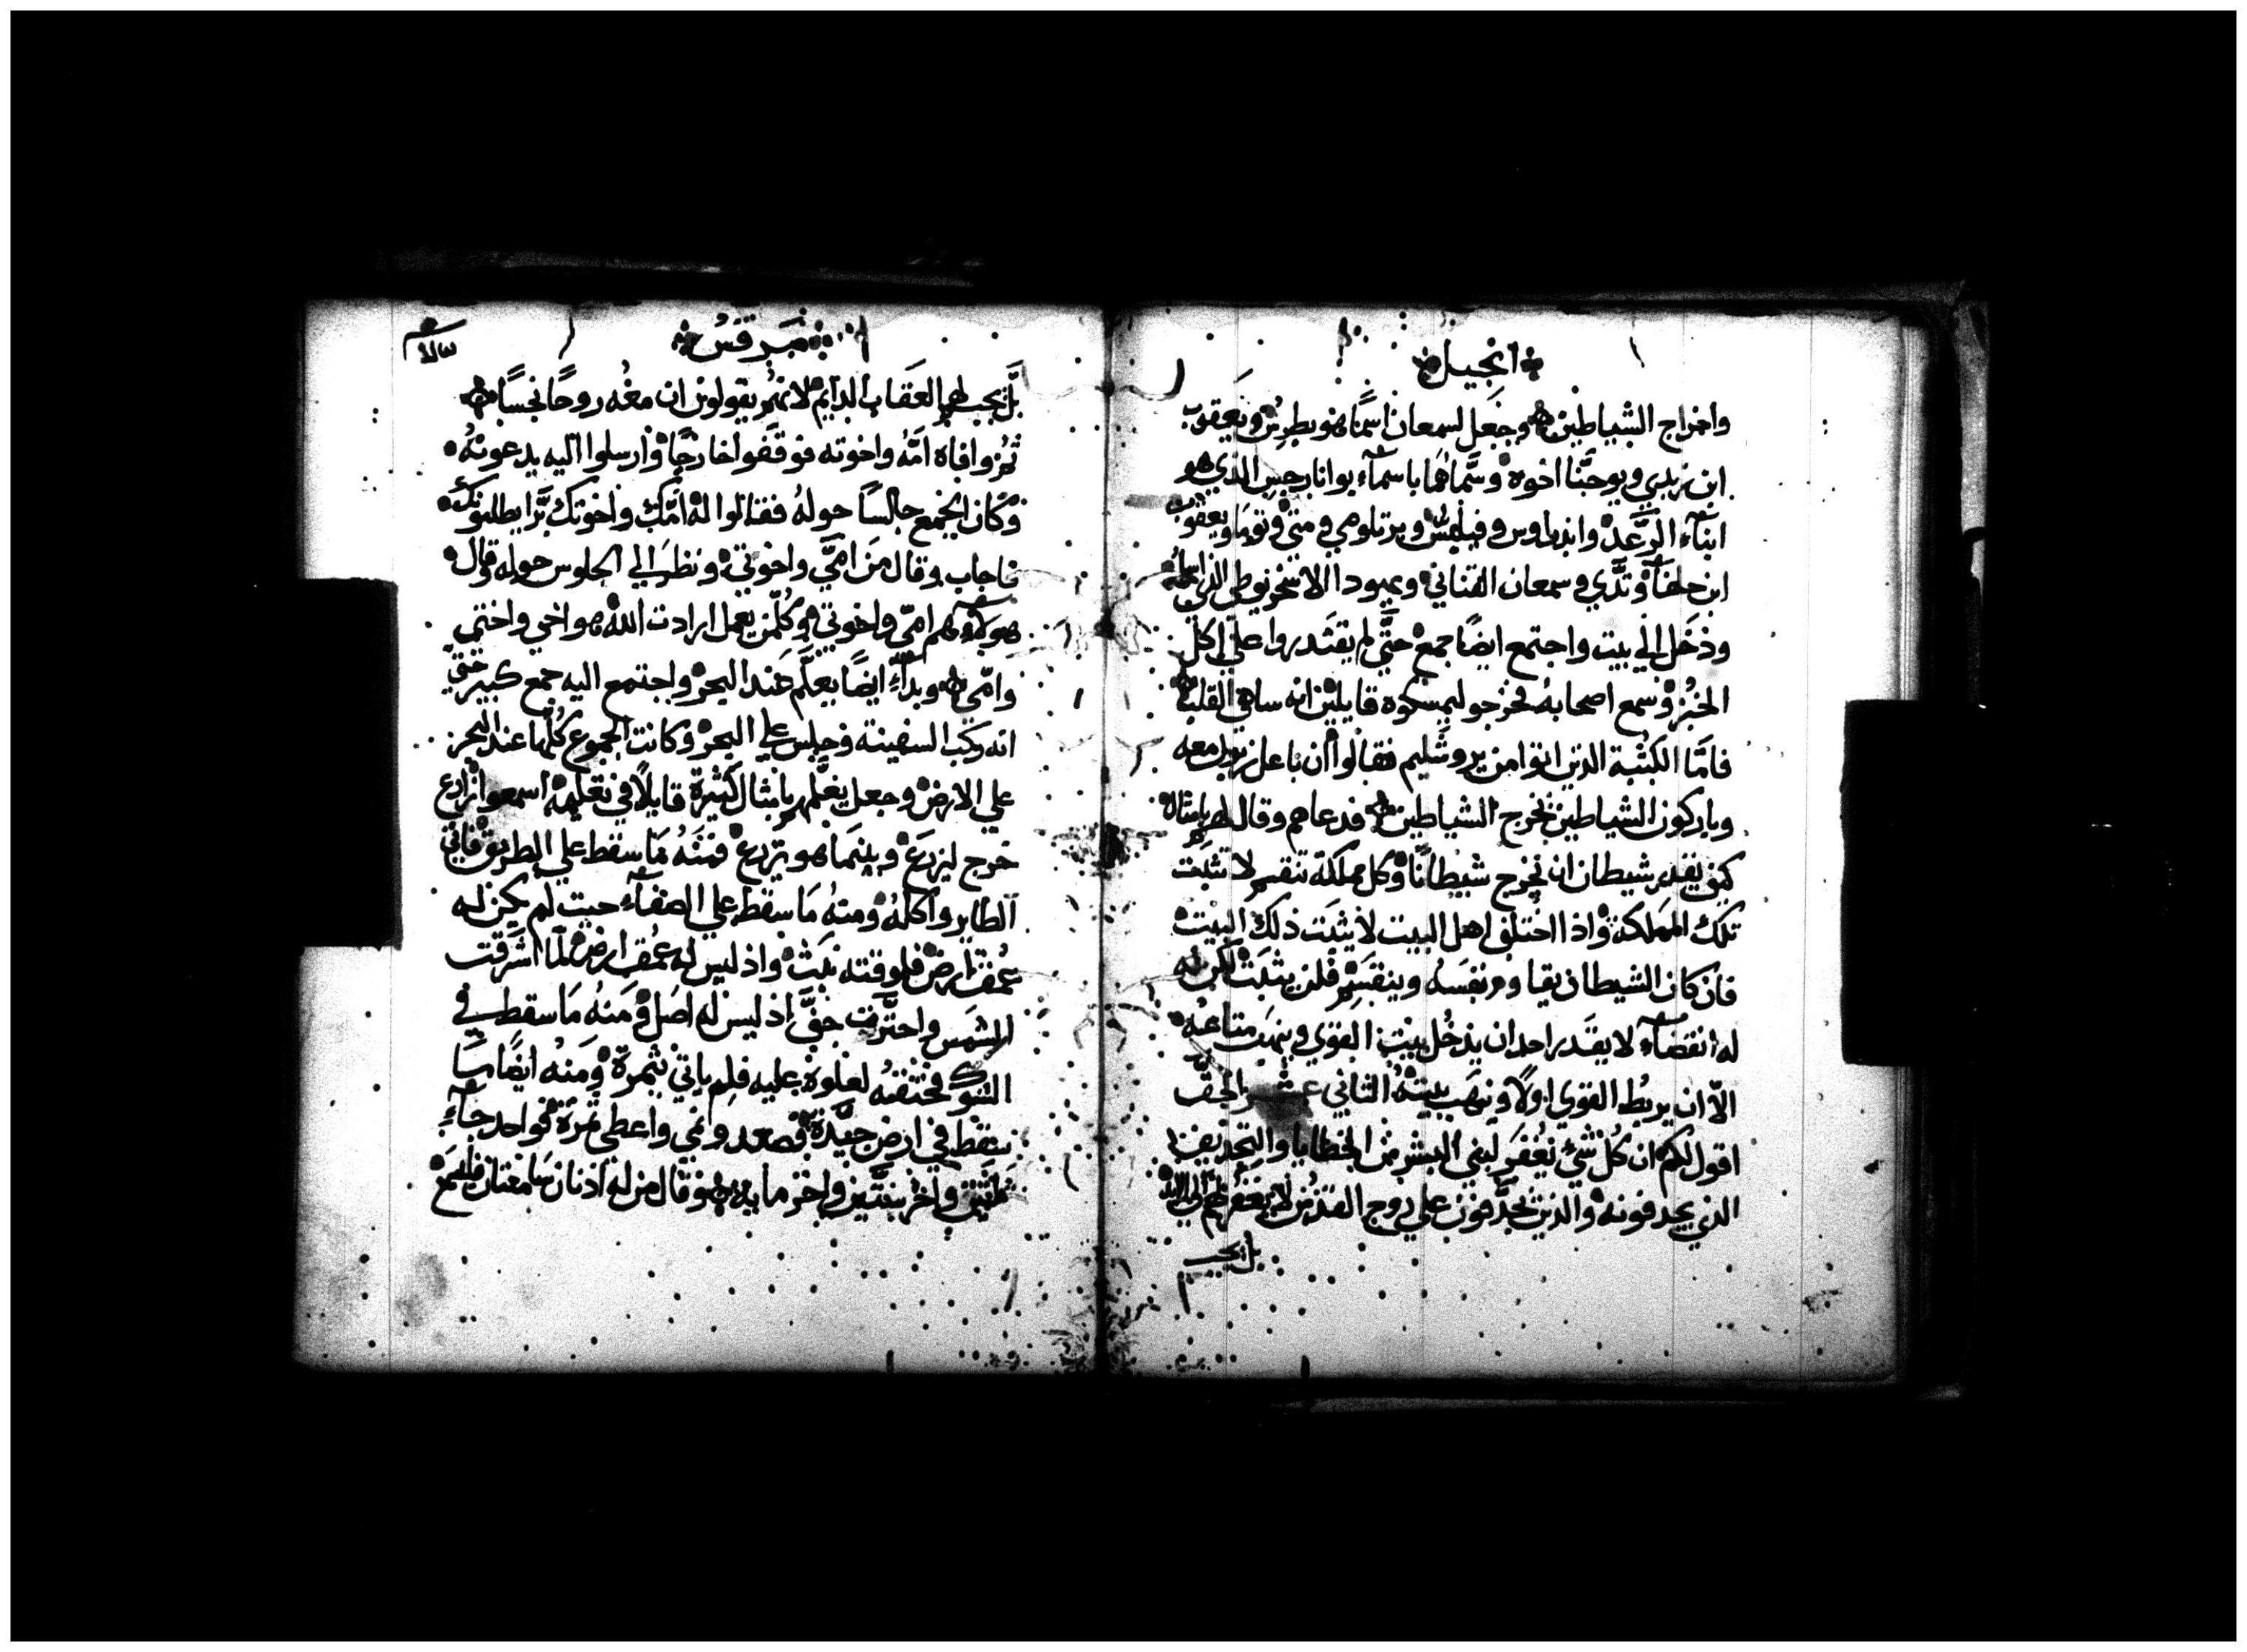 انجيل
واخراج الشياطين وجعل لسمعان اسمًا هو بطرس ويعقوب
ابن زبدي ويوحنَّا اخوه وسَمَّاهُما باسمآء بوانارجس الدي هو
ابنآء الرَّعد واندراوس وفيلبس وبرتلومي ومتي وتوما ويعقوب
ابن حلفآ وتدَّي وسمعان القناني ويهودا الاسخريوطي الذي اسلمه
ودخل الي بيت واجتمع ايضًا جمع حتَّي لم يقتدروا علي اكل
الخبُز وسمع اصحابهُ فخرجو ليمسكوه قايلين انه ساهي القلب
فامَّا الكتبة الدين اتوا من يروشليم فقالوا ان باعلزبول معه
وباركون الشياطين يخرج الشياطين فدعاهم وقال لهم بامتاله
كيف يقدر شيطان ان يخرج شيطانًا وكل مملكة تنقسم لا تثبت
تلك المملكة واذا اختلف اهل البيت لا يثبت ذلك البيت
فان كان الشيطان يقاوم نفسَه وينقسم فلن يثبَت لكن له
له انقضآء لا يقدر احد ان يدخُل بيت القوي وينهَب متاعهُ
الاّ ان يربُط القوي اولًا وينهَب بيتهُ الثاني عشر الحقّ
اقول لكم ان كُل شيْ يُغفَر لبني البشر من الخطايا والتجديف
الذي يجدفونه والذين يجدَّفون علي روح القدُس لا يغفرُ لهم الي الابد
بل يجب
مَرقسُ
بَل يجب لهم العقاب الدايم لانهُم يقولون ان معُه روحًا نجسًا
ثُم وافاه امُّه واخوته فوقَفوا خارجًا وارسلوا اليه يدعونهُ
وكان الجمع جالسًا حولهُ فقالوا لهُ امّك واخوتك برَّا يطلبونك
فاجاب وقال من امّي واخوتي ونظرَ الي الجلوس حوله وقال
هولآء هم امّي واخوتي وكُلّمن يعمل ارادت الله هو اخي واختي
وامّي وبدآء ايضًا يعلّم عند البحر واجتمع اليه جمع كبير حتّي
انه ركب السفينة وجلس علي البحر وكانت الجموع كُلّها عند البحر
علي الارض وجعل يعلّمهم بامثال كثيرة قايلًا في تعليمه اسمعوا زارع
خرج ليزرع وبينما هو يزرع فمنهُ ما سقط علي الطريق فاتي
الطاير واكلهُ ومنهُ ما سقط علي الصفآء حيت لم يكن له
عُمق ارض فلوقته نبت واذ ليس له عمُق ارض لمّا اشرقت
الشمس واحترَّت جفَّ اذ ليس له اصل ومنهُ ما سقط في
الشوك فخنقتهُ لعلوة عليه فلم ياتي بثمرة ومنهُ ايضًا ما
سقط في ارض جيَّدة فصعد ونمي واعطي ثمرة فواحد جآء
ثلثين واخر ستّين واخر مايه وقال من له اذنان سامعتان فليسمع